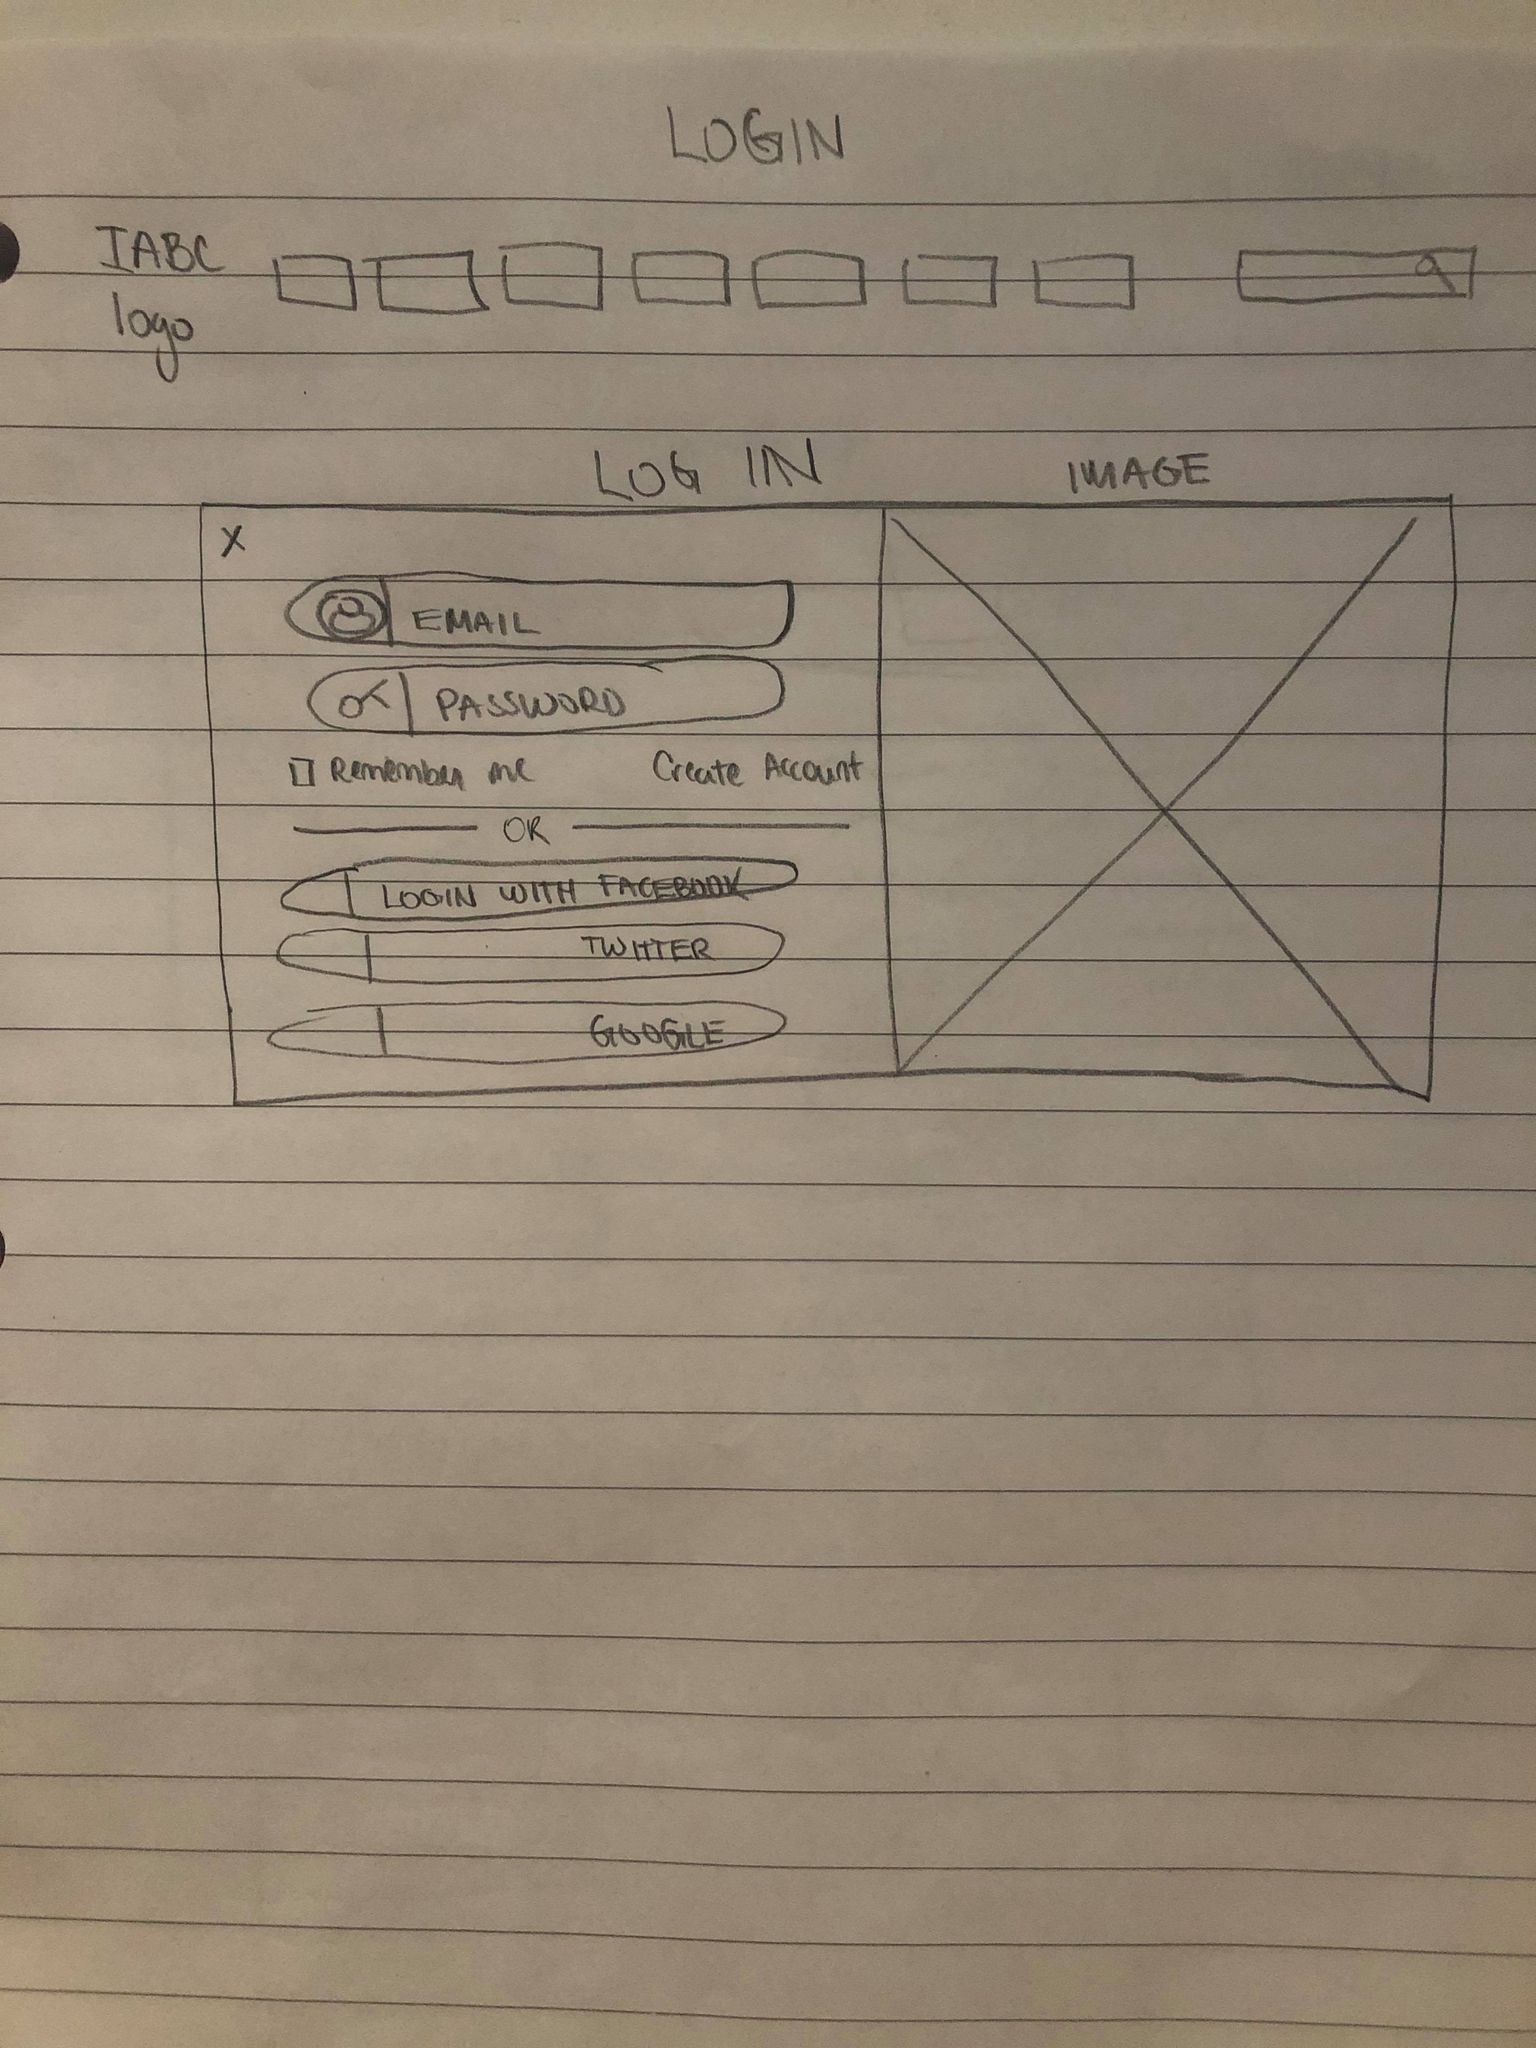 LOGIN
IABC
logo
LOG IN
IMAGE
X
EMAIL
PASSWORD
Remember me
Create Account
OR
LOGIN WITH FACEBOOK
TWITTER
GOOGLE